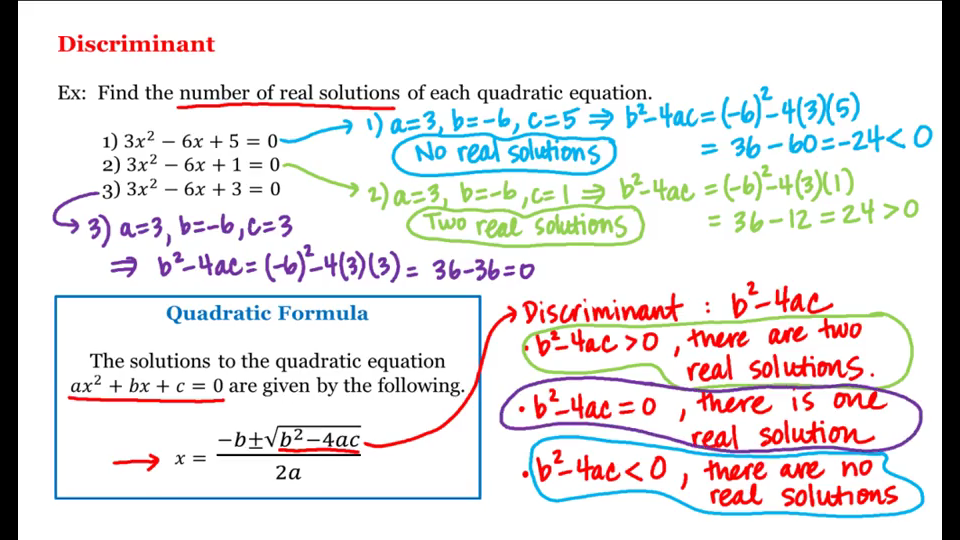 Discriminant
Ex: Find the number of real solutions of each quadratic equation.
1) 3x² − 6x + 5 = 0
2) 3x² − 6x + 1 = 0
3) 3x² − 6x + 3 = 0
1) a=3, b=-6, c=5 ⇒ b²-4ac = (-6)²-4(3)(5)
= 36-60=-24<0
No real solutions
2) a=3, b=-6, c=1 ⇒ b²-4ac = (-6)²-4(3)(1)
= 36-12=24>0
Two real solutions
3) a=3, b=-6, c=3
⇒ b²-4ac=(-6)²-4(3)(3)= 36-36=0
Quadratic Formula
The solutions to the quadratic equation
ax² + bx + c = 0 are given by the following.
x = (−b±√(b²−4ac))/(2a)
Discriminant : b²-4ac
• b²-4ac>0, there are two
real solutions.
• b²-4ac=0, there is one
real solution
• b²-4ac<0, there are no
real solutions